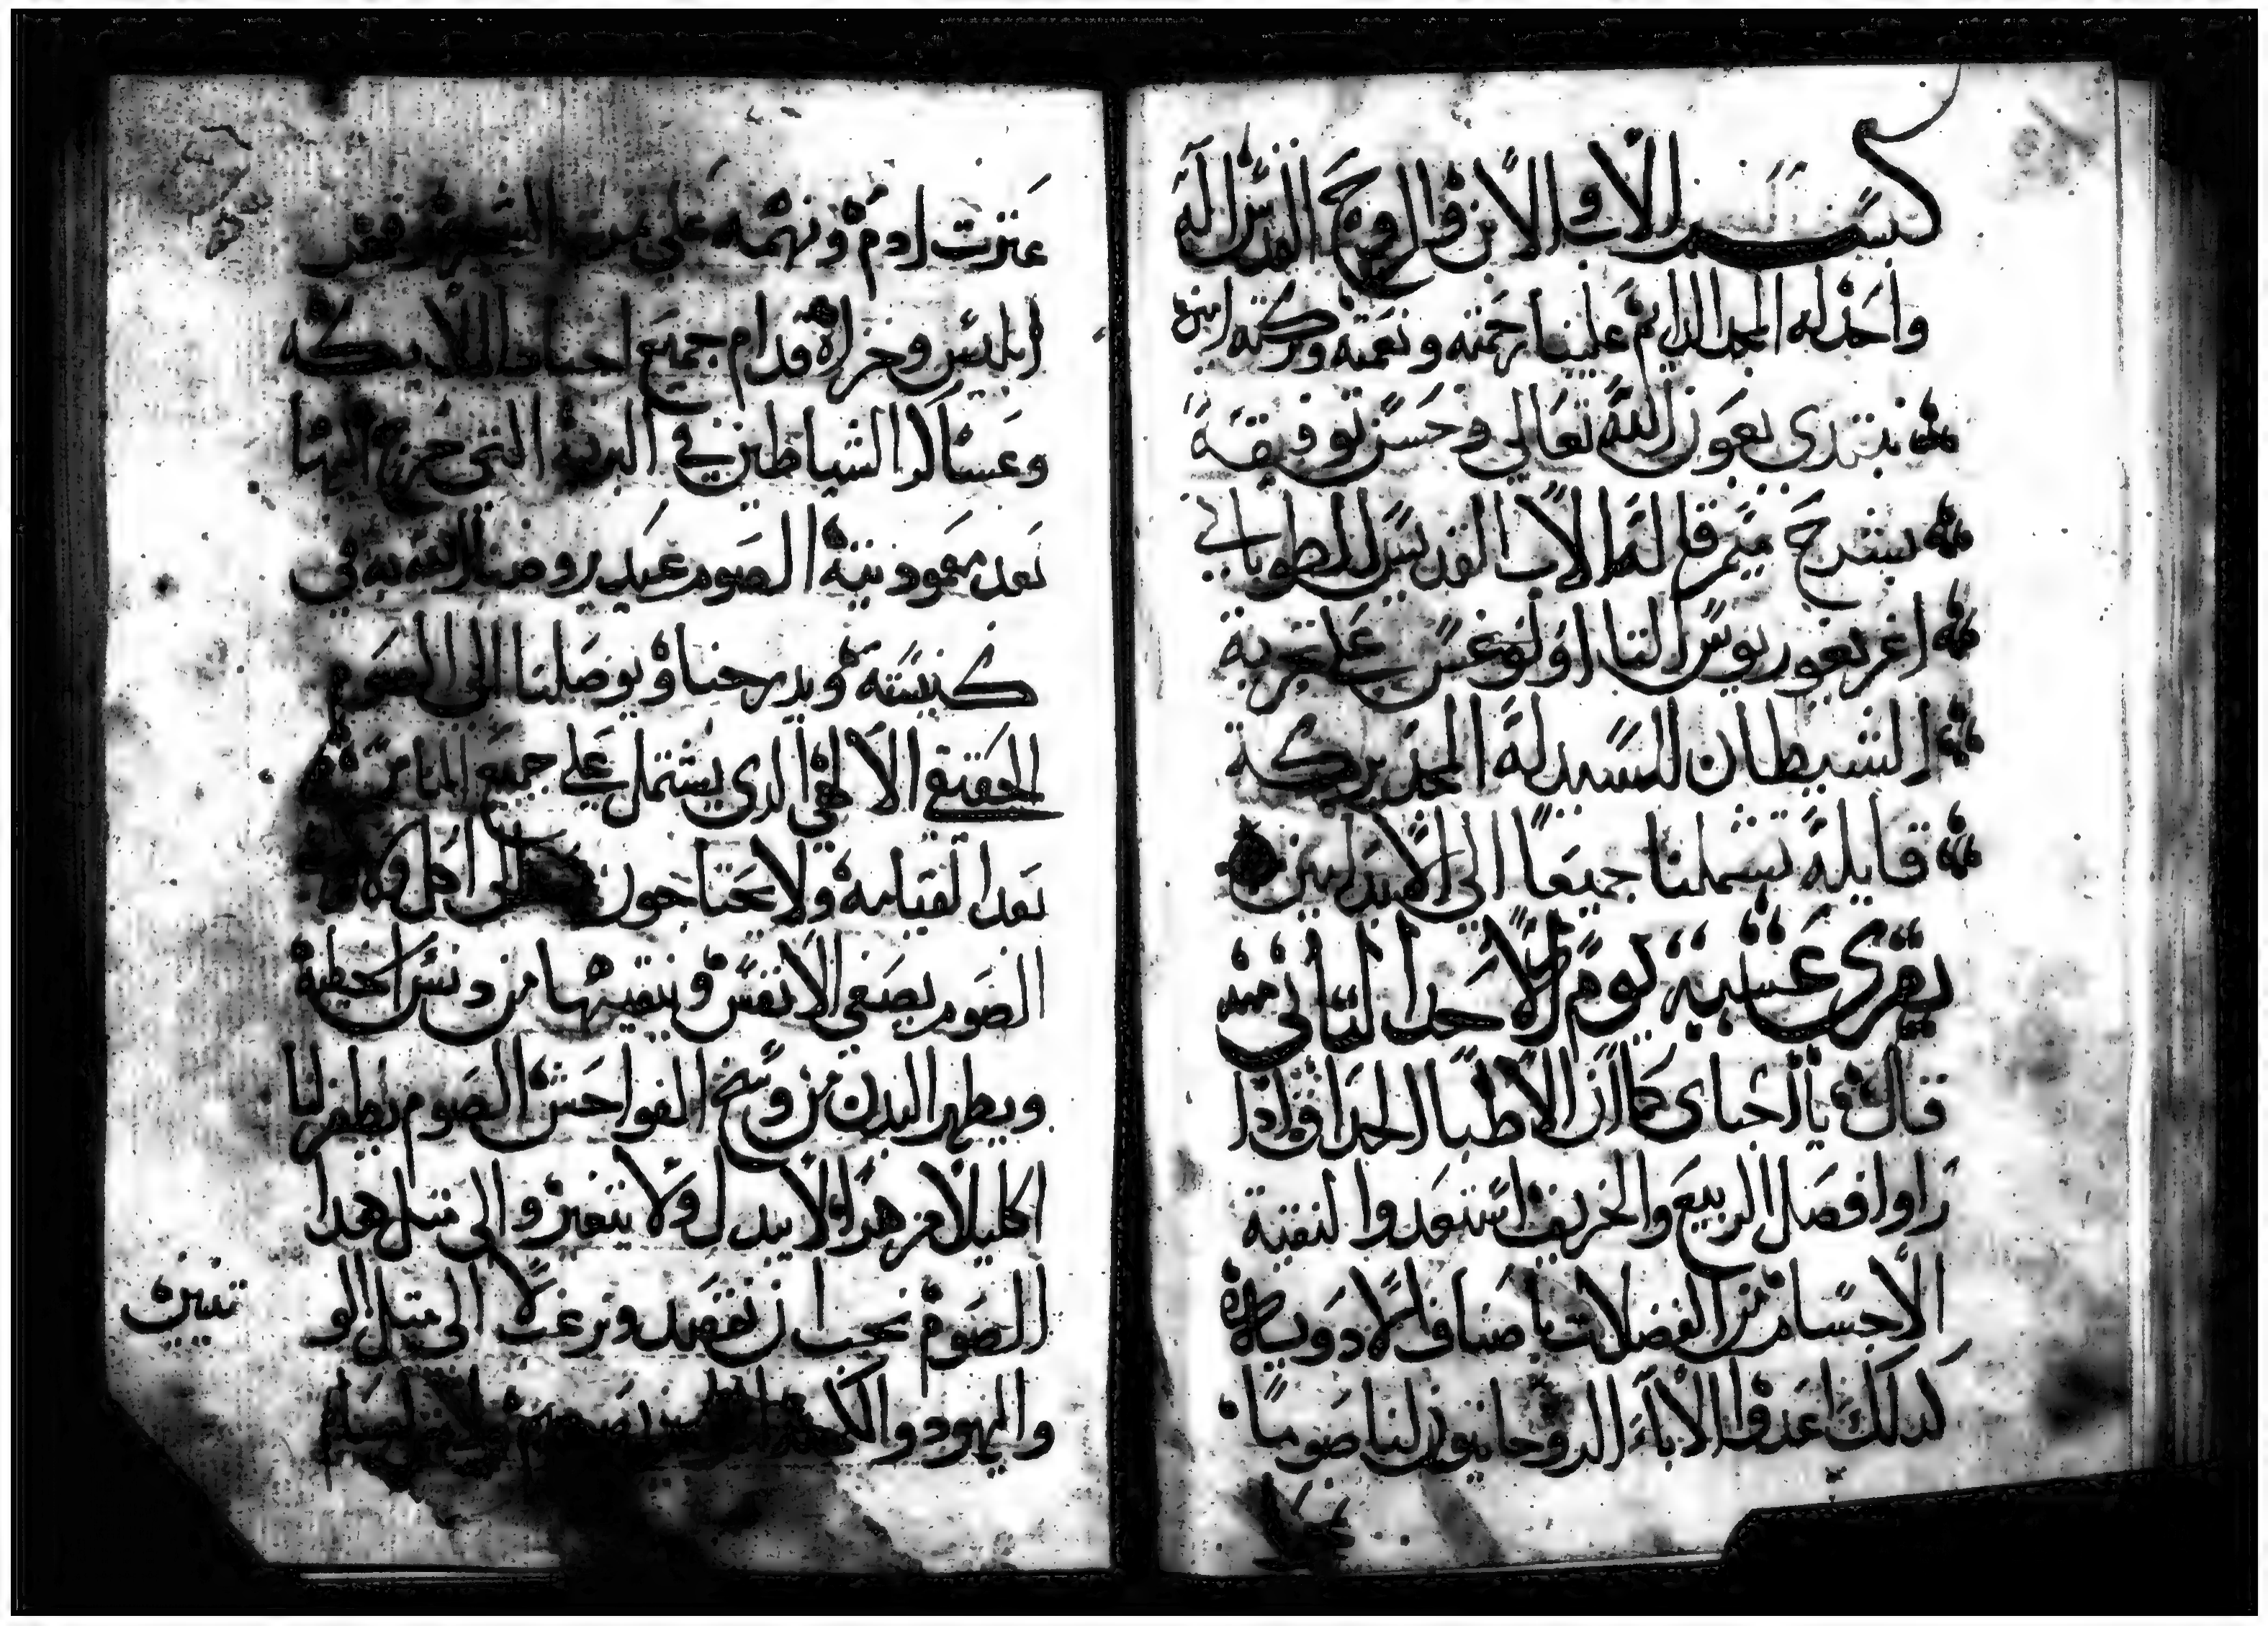 بسم الاب والابن والروح القدس اله
واحد له المجد الدايم علينا رحمته ونعمته وبركته امين
نبتدي بعون الله تعالي وحسن توفيقه
بشرح ميمر قاله الاب القديس الطوباني
اغريغوريوس التاولوغس علي تجربة
الشيطان للسيد له المجد بركة
قايله تشملنا جميعا الي الابد امين
يقري عشية يوم الاحد الثاني منه
قال يا احباي كما ان الاطبا الحداق ادا
راوا فصل الربيع والخريف استعدوا لتنقية
الاجسام من الفضلات باصناف الادوية
كدلك اعدوا الاباء الروحانيون لنا صوما
عترت ادم ونهمه علي
ابليس وخزاه قدام جميع اجناد الملايكه
وعساكر الشياطين في البريه التي خرج اليها
بعد معموديته الصوم عيد يروضنا الله به في
كنيسته ويدرجنا ويوصلنا الى الصوم
الحقيقي الالهي الدي يشتمل علي جميع الناس
بعد القيامه ولا يحتاجون الى اكل
الصوم يصفي الانفس وينقيها من دنس الخطية
ويطهر البدن من وسخ الفواحش الصوم يظفر لنا
اكليلا مزهرا لا يبدل ولا يتغير والى مثل هدا
الصوم يجب ان نقصد ونرغب لا الى مثل الو
تنيين
واليهود